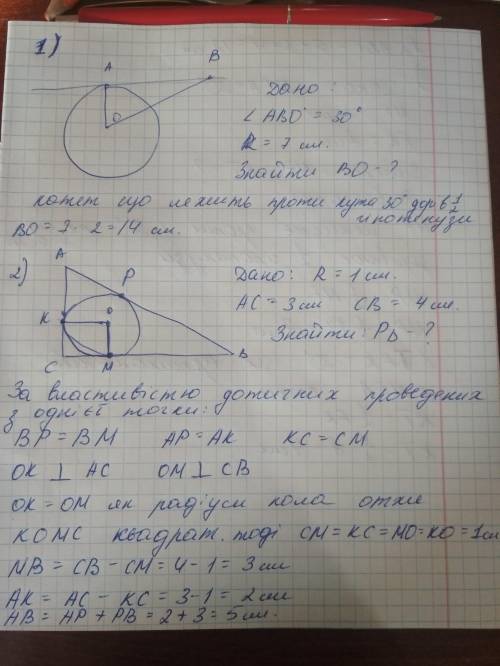 1)
A
B
O
Дано:
∠ABO = 30°
R = 7 см.
Знайти BO - ?
катет що лежить проти кута 30° дорів 1/2
гіпотенузи
BO = 7 · 2 = 14 см.
2)
A
P
K
O
C
M
B
Дано: R = 1 см.
AC = 3 см CB = 4 см.
Знайти: P∆ - ?
За властивістю дотичних проведених
з однієї точки:
BP = BM AP = AK KC = CM
OK ⊥ AC OM ⊥ CB
OK = OM як радіуси кола отже
KOMC квадрат. тоді CM = KC = MO = KO = 1 см
MB = CB - CM = 4 - 1 = 3 см
AK = AC - KC = 3 - 1 = 2 см
AB = AP + PB = 2 + 3 = 5 см.